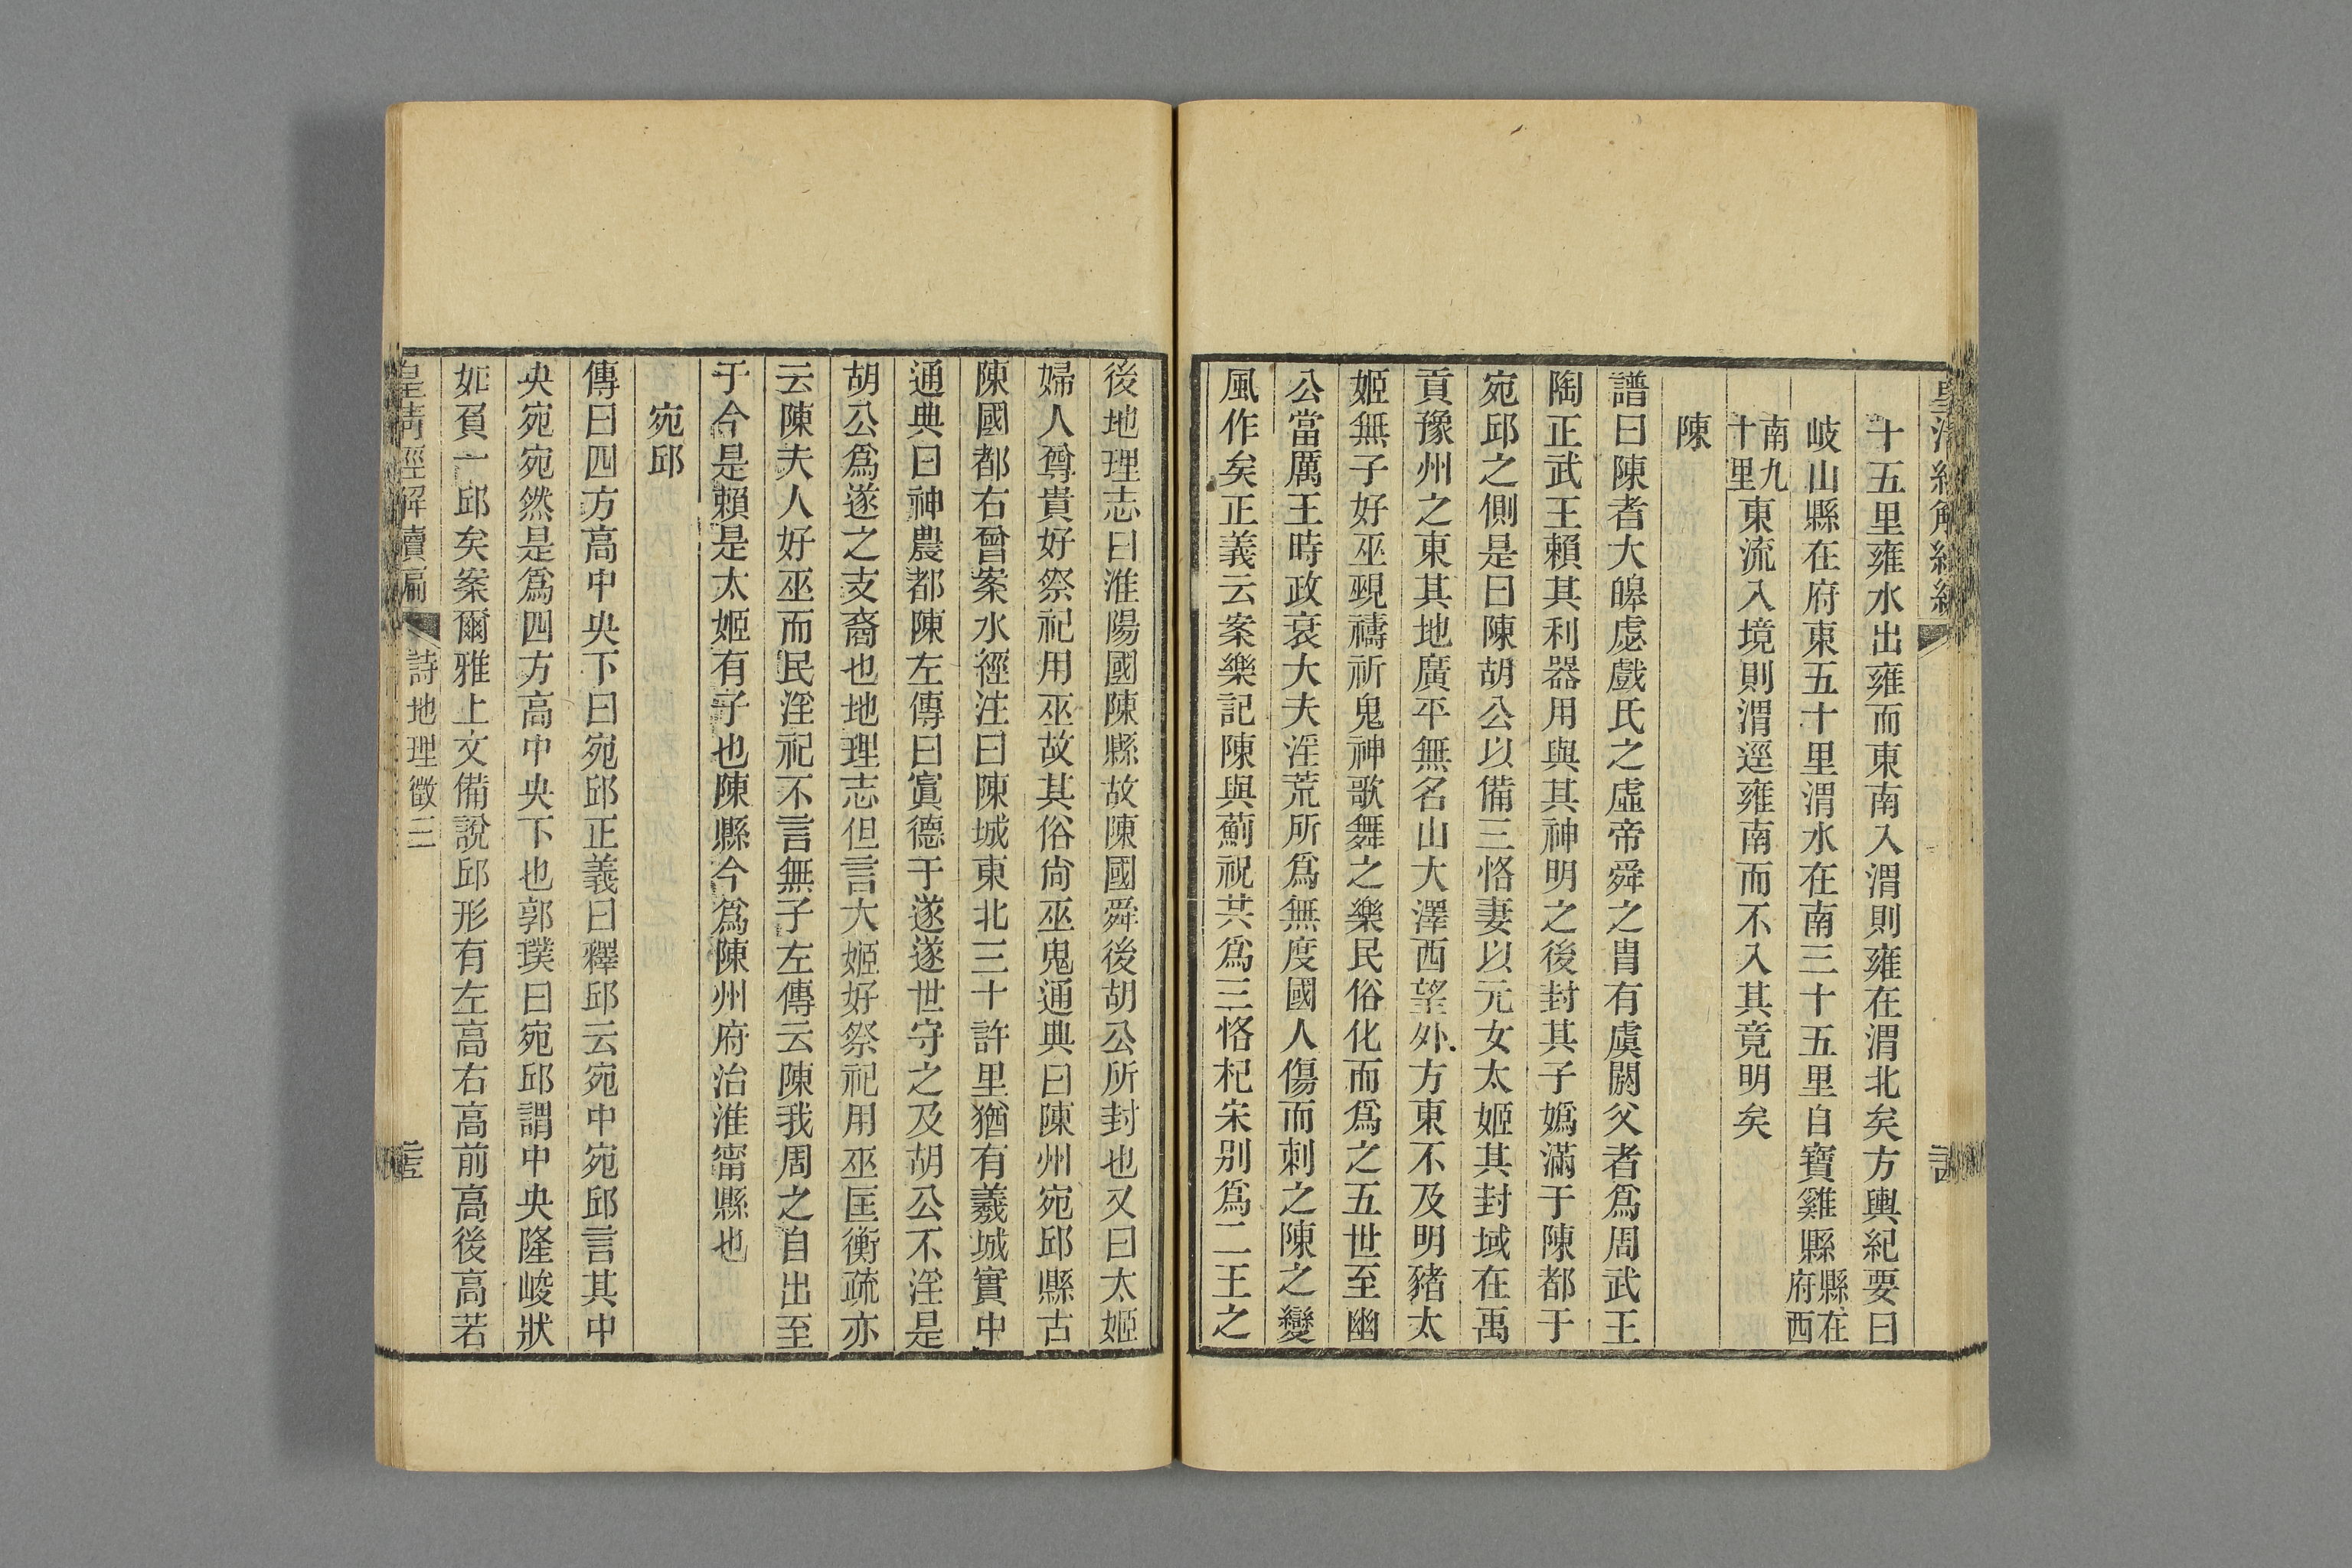 十五里雍水出雍而東南入渭則雍在渭北矣方輿紀要曰
岐山縣在府東五十里渭水在南三十五里自寶雞縣縣在府西
南九十里東流入境則渭逕雍南而不入其竟明矣
陳
譜曰陳者大皞虙戲氏之虛帝舜之胄有虞閼父者爲周武王
陶正武王賴其利器用與其神明之後封其子嬀滿于陳都于
宛邱之側是曰陳胡公以備三恪妻以元女太姬其封域在禹
貢豫州之東其地廣平無名山大澤西望外方東不及明豬太
姬無子好巫覡禱祈鬼神歌舞之樂民俗化而爲之五世至幽
公當厲王時政衰大夫淫荒所爲無度國人傷而刺之陳之變
風作矣正義云案樂記陳與薊祝共爲三恪杞宋别爲二王之
後地理志曰淮陽國陳縣故陳國舜後胡公所封也又曰太姬
婦人尊貴好祭祀用巫故其俗尙巫鬼通典曰陳州宛邱縣古
陳國都右曾案水徑注曰陳城東北三十許里猶有羲城實中
通典曰神農都陳左傳曰寘德于遂遂世守之及胡公不淫是
胡公爲遂之支裔也地理志但言大姬好祭祀用巫匡衡疏亦
云陳夫人好巫而民淫祀不言無子左傳云陳我周之自出至
于今是賴是太姬有子也陳縣今爲陳州府治淮甯縣也
宛邱
傳曰四方高中央下曰宛邱正義曰釋邱云宛中宛邱言其中
央宛宛然是爲四方高中央下也郭璞曰宛邱謂中央隆峻狀
如負一邱矣案爾雅上文備說邱形有左高右高前高後高若
皇清經解續編
詩地理徵三